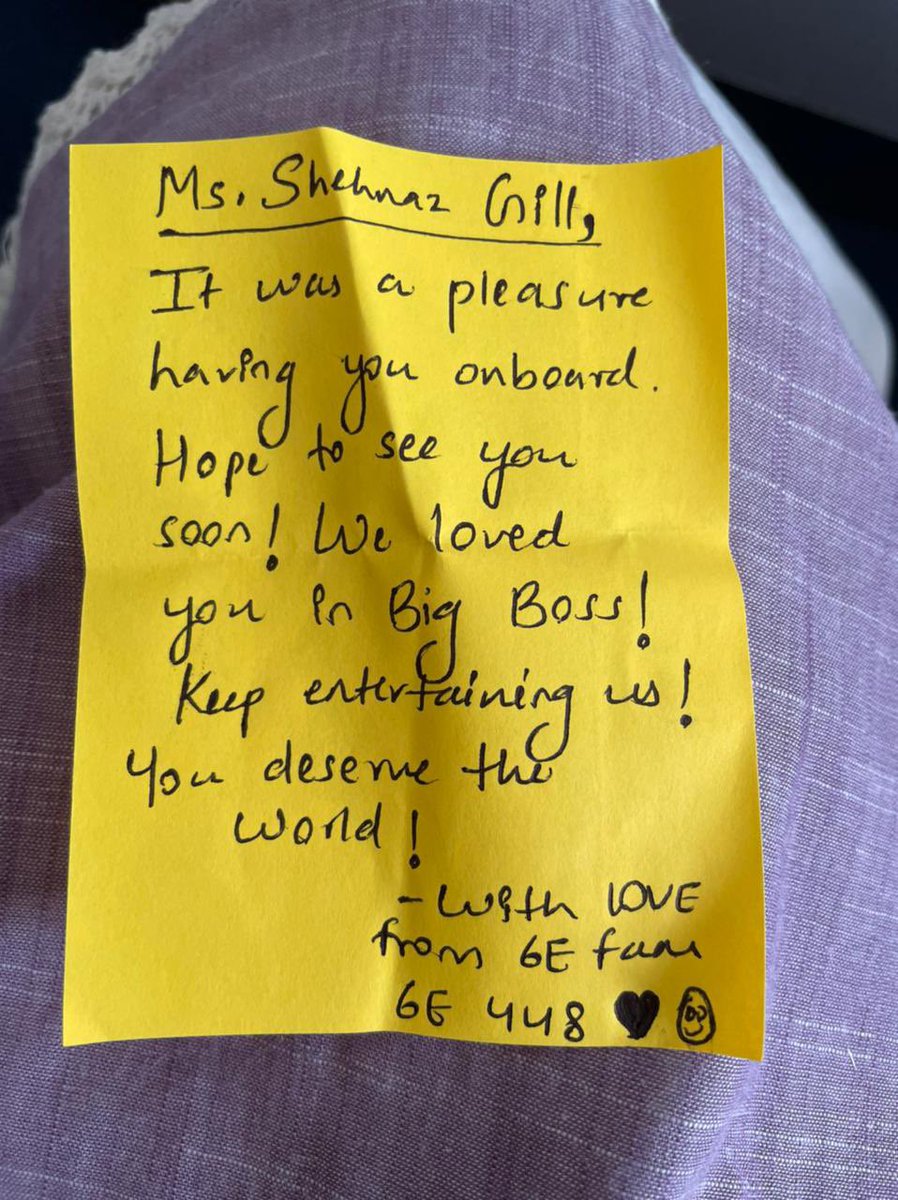 Ms. Shehnaz Gill,
It was a pleasure
having you onboard.
Hope to see you
soon! We loved
you in Big Boss!
Keep entertaining us!
You deserve the
world!
- With LOVE
from 6E fam
6E 448